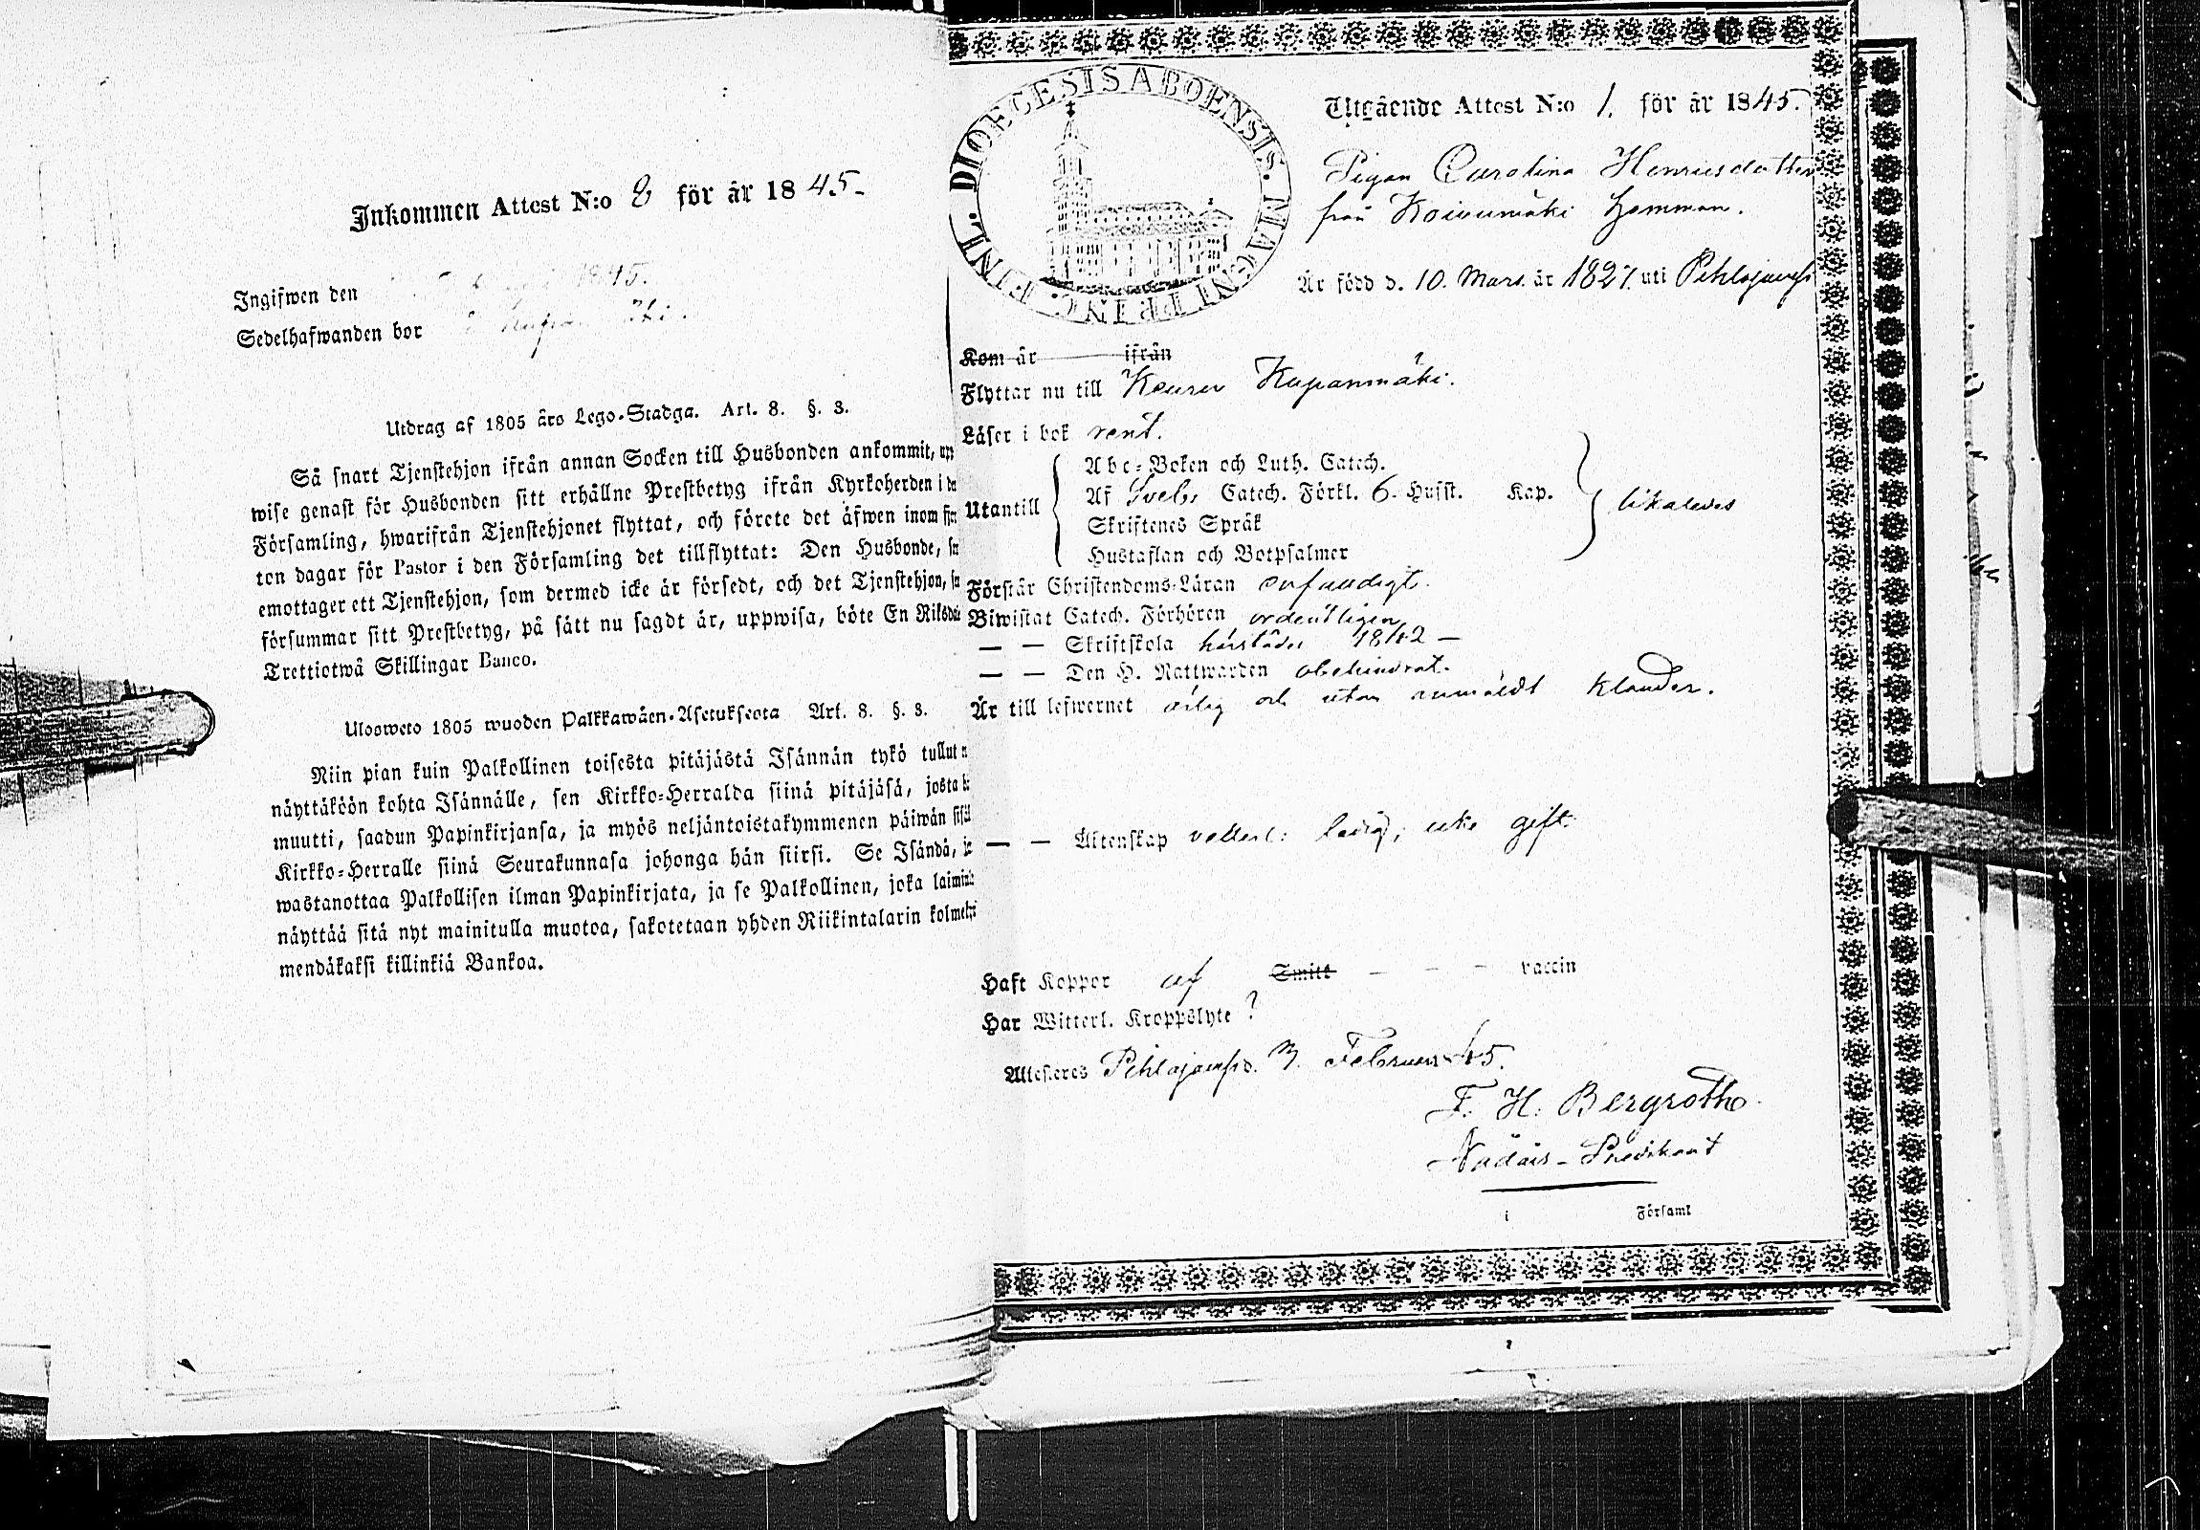 Inkommen Attest N:o 8 för år 1845.
Ingifwen den 1845.
Sedelhafwanden bor
Utdrag af 1805 års Lego-Stadga. Art. 8. §. 3.
Så snart Tjenstehjon ifrån annan Socken till Husbonden ankommit, upp
wise genast för Husbonden sitt erhållne Prestbetyg ifrån Kyrkoherden i den
Församling, hwarifrån Tjenstehjonet flyttat, och förete det äfwen inom fjor
ton dagar för Pastor i den Församling det tillflyttat: Den Husbonde, so
emottager ett Tjenstehjon, som dermed icke är försedt, och det Tjenstehjon, so
försummar sitt Prestbetyg, på sätt nu sagdt är, uppwisa, böte En Riksdal
Trettiotwå Skillingar Banco.
Ulosweto 1805 wuoden Palkkawäen-Asetuksesta Art. 8. §. 3.
Niin pian kuin Palkollinen toisesta pitäjästä Isännän tykö tullut
näyttäköön kohta Isännälle, sen Kirkko-Herralda siinä pitäjäsä, josta
muutti, saadun Papinkirjansa, ja myös neljäntoistakymmenen päiwän sisäl
Kirkko-Herralle siinä Seurakunnasa johonga hän siirsi. Se Isändä, jo
wastanottaa Palkollisen ilman Papinkirjata, ja se Palkollinen, joka laimin
näyttää sitä nyt mainitulla muotoa, sakotetaan yhden Riikintalarin kolmeky
mendäkaksi killinkiä Bankoa.
DIOECESIS ABOENSIS. MAGNI PRINC. FINL.
Utgående Attest N:o 1. för år 1845.
Pigan Carolina Henricsdotter
från Koivumäki hemman.
Är född d. 10. Mars. år 1827. uti Pihlajavesi
Kom år ifrån
Flyttar nu till Keuru Kupanmäki.
Läser i bok rent.
Utantill
Abc-Boken och Luth. Catech.
Af Sveb. Catech. Förkl. 6. Husst. Kap.
Skriftenes Språk
Hustaflan och Botpsalmer
likaledes
Förstår Christendoms-Läran
Biwistat Catech. Förhören ordentligen
— — Skriftskola härstädes 1842 —
— — Den H. Nattwarden obehindrat.
Är till lefwernet ärlig och utan anmäldt klander.
— — Äktenskap vetterl: ledig, icke gift.
Haft Koppor af Smitt - - - vaccin
Har Witterl. Kroppslyte ?
Attesteres Pihlajavesi d. 3. Februari 45.
F. H. Bergroth
Nådårs-Predikant
i Församl